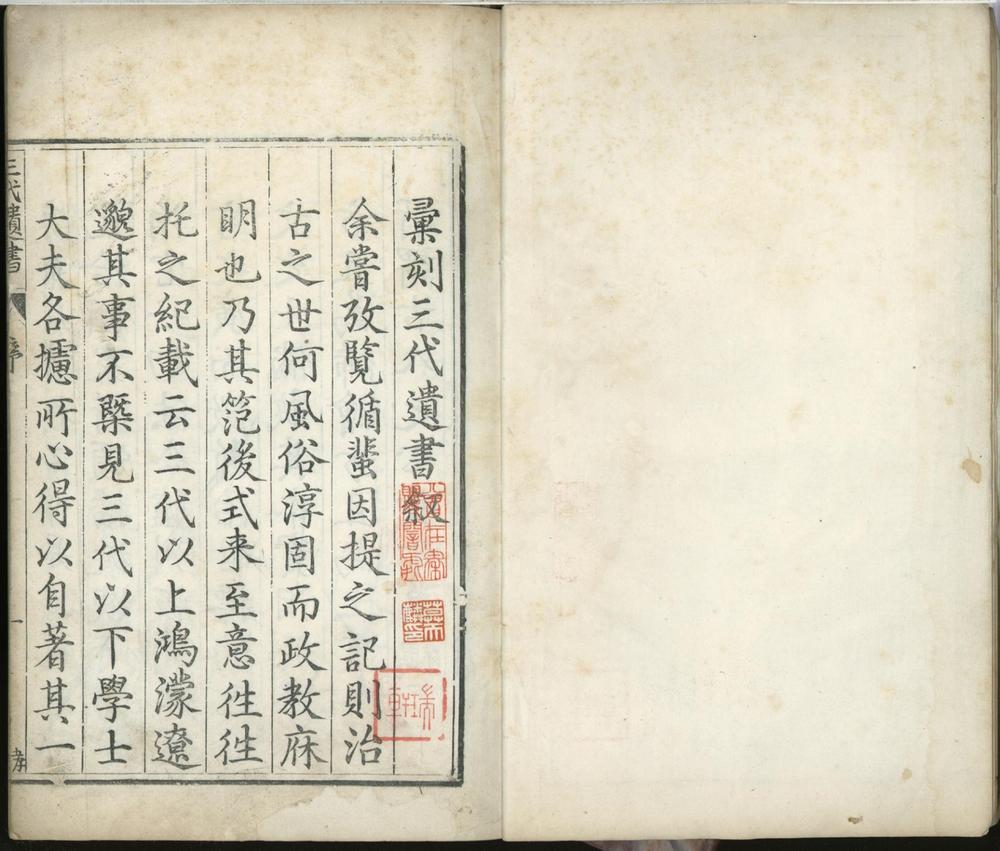 彙刻三代遺書叙
余嘗攷覽循蜚因提之記則治
古之世何風俗淳固而政教庥
明也乃其笵後式来至意徃徃
托之紀載云三代以上鴻濛遼
邈其事不槩見三代以下學士
大夫各攄所心得以自著其一
三代遺書
序
一